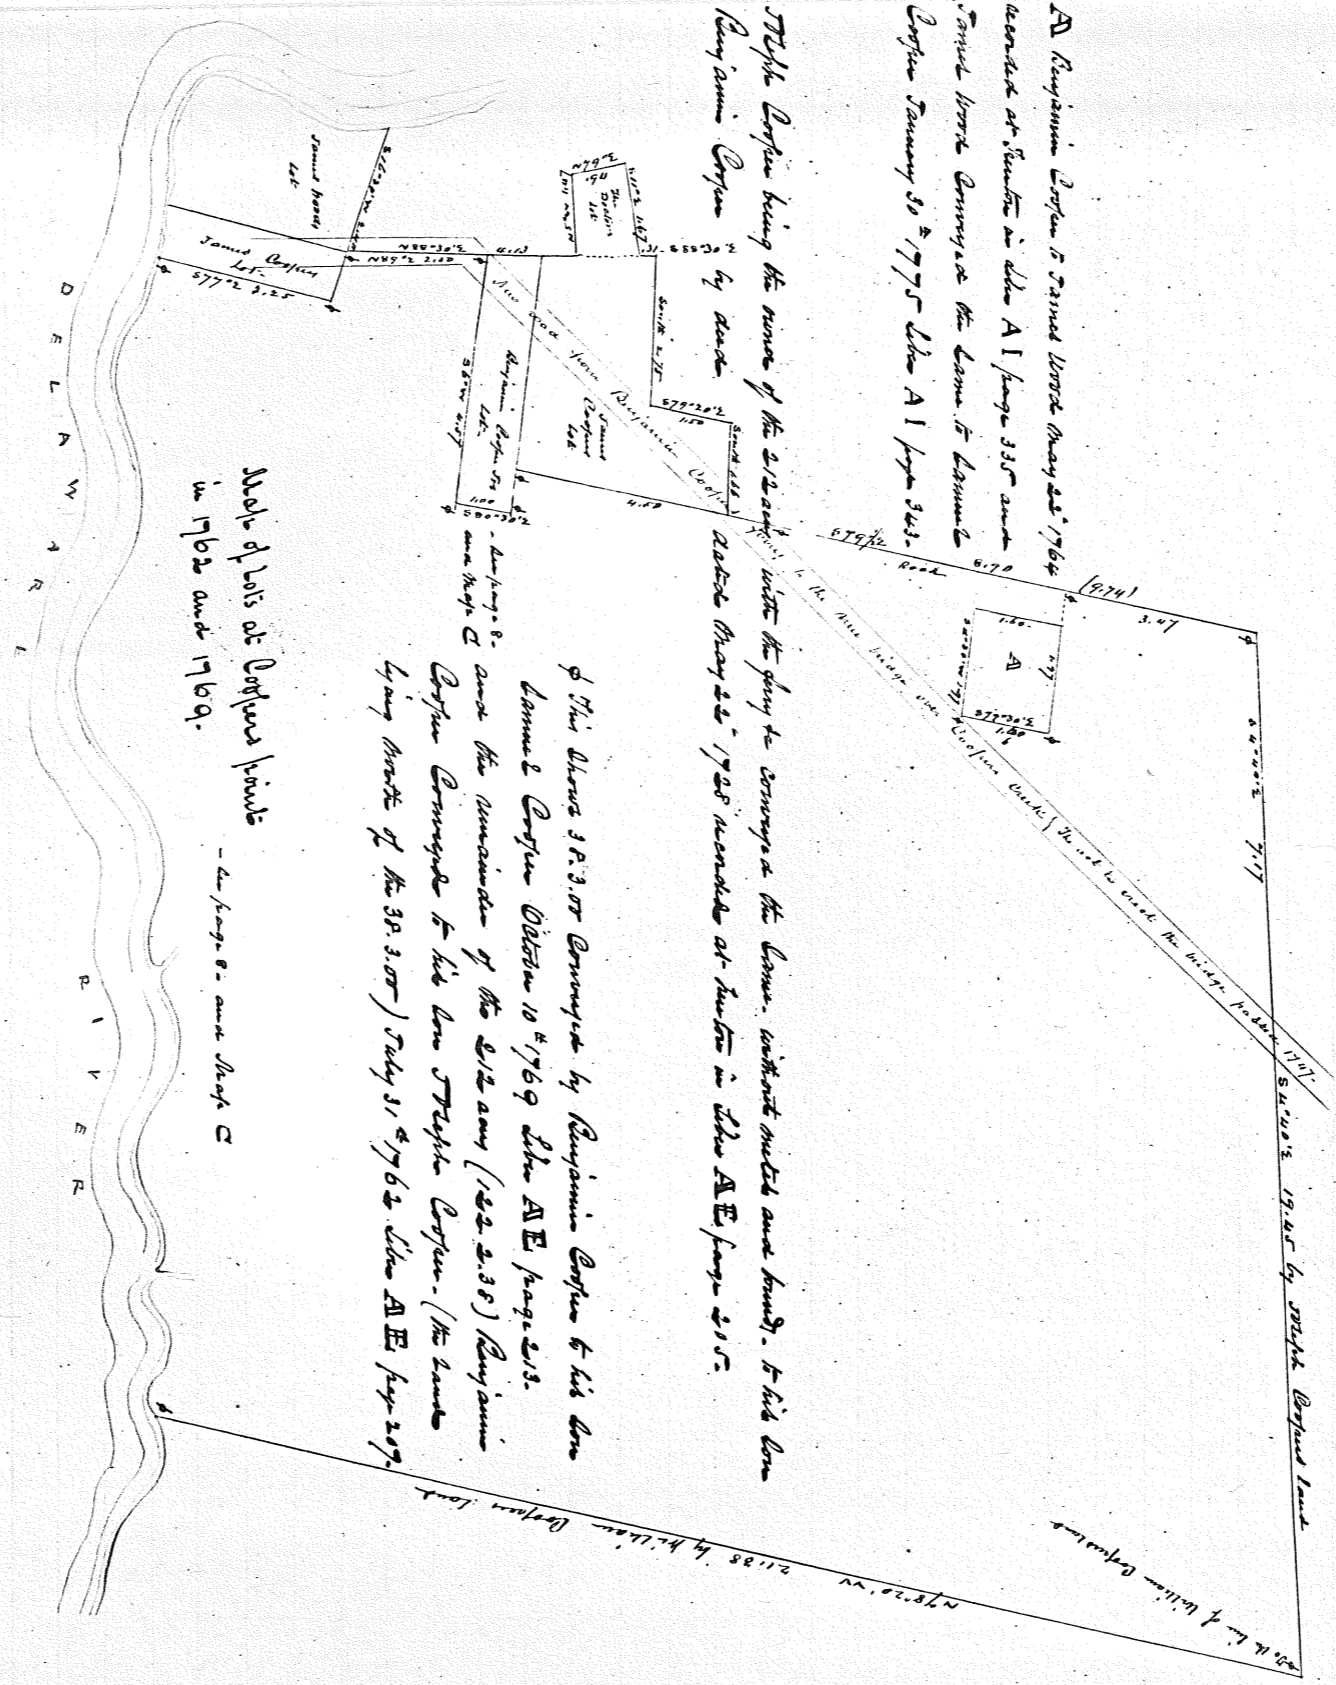 A Benjamin Cooper to James Wood May 22d 1764
recorded at Trenton in Liber A I page 335 and
James Wood Conveyed the same to Samuel
Cooper January 30th 1775 Liber A I page 343.
Joseph Cooper being the owner of the 212 acres with the ferry &c conveyed the same - without metes and bounds - to his son
Benjamin Cooper by deed dated May 22d 1728 recorded at Trenton in Liber AE page 205.
ɸ This shows 38.3.00 Conveyed by Benjamin Cooper to his son
Samuel Cooper October 10th 1769 Liber AE page 213.
and the remainder of the 212 acres (122.2.38) Benjamin
Cooper Conveyed to his son Joseph Cooper - (the lands
lying North of the 38.3.00) July 31st 1762 Liber AE page 209.
- See page 8 -
and Map C
Map of Lots at Coopers point
in 1762 and 1769.
- See page 8 - and Map C
DELAWARE RIVER
James Woods
Lot
S16°30'W
James Cooper
Lot
S77°E 3.25
N88°30'E
N89°E 2.00
4.13
N79°E
.94
The
Lot
S11°E 1.67
.31
S88°30'E
South 2.75
S79°20'E
1.50
South 1.66
James
Cooper
Lot
4.50
Benjamin Cooper
Lot
S6°W 4.57
1.00
S80°30'E
New road from Benjamin Coopers ferry to the new bridge over Coopers Creek (The act to erect the bridge passed 1747.
S79½E
Road
6.70
(9.74)
3.47
A
1.60
1.77
S79°30'E
1.60
S4°40'E 7.17
S4°40'E 19.45 by Joseph Coopers Land
To the line of William Coopers land
N78°20'W 21.38 by William Coopers land